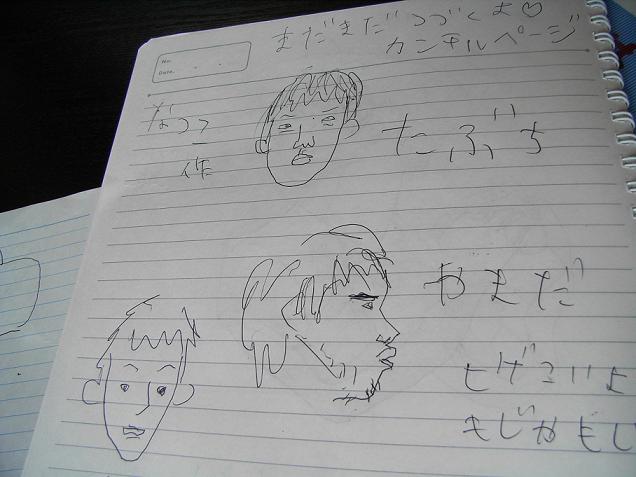 No.
Date.
まだまだつづくよ♡
カンチルページ
なつこ
作
たぶち
やまだ
ヒゲこいよ
もじゃもじ